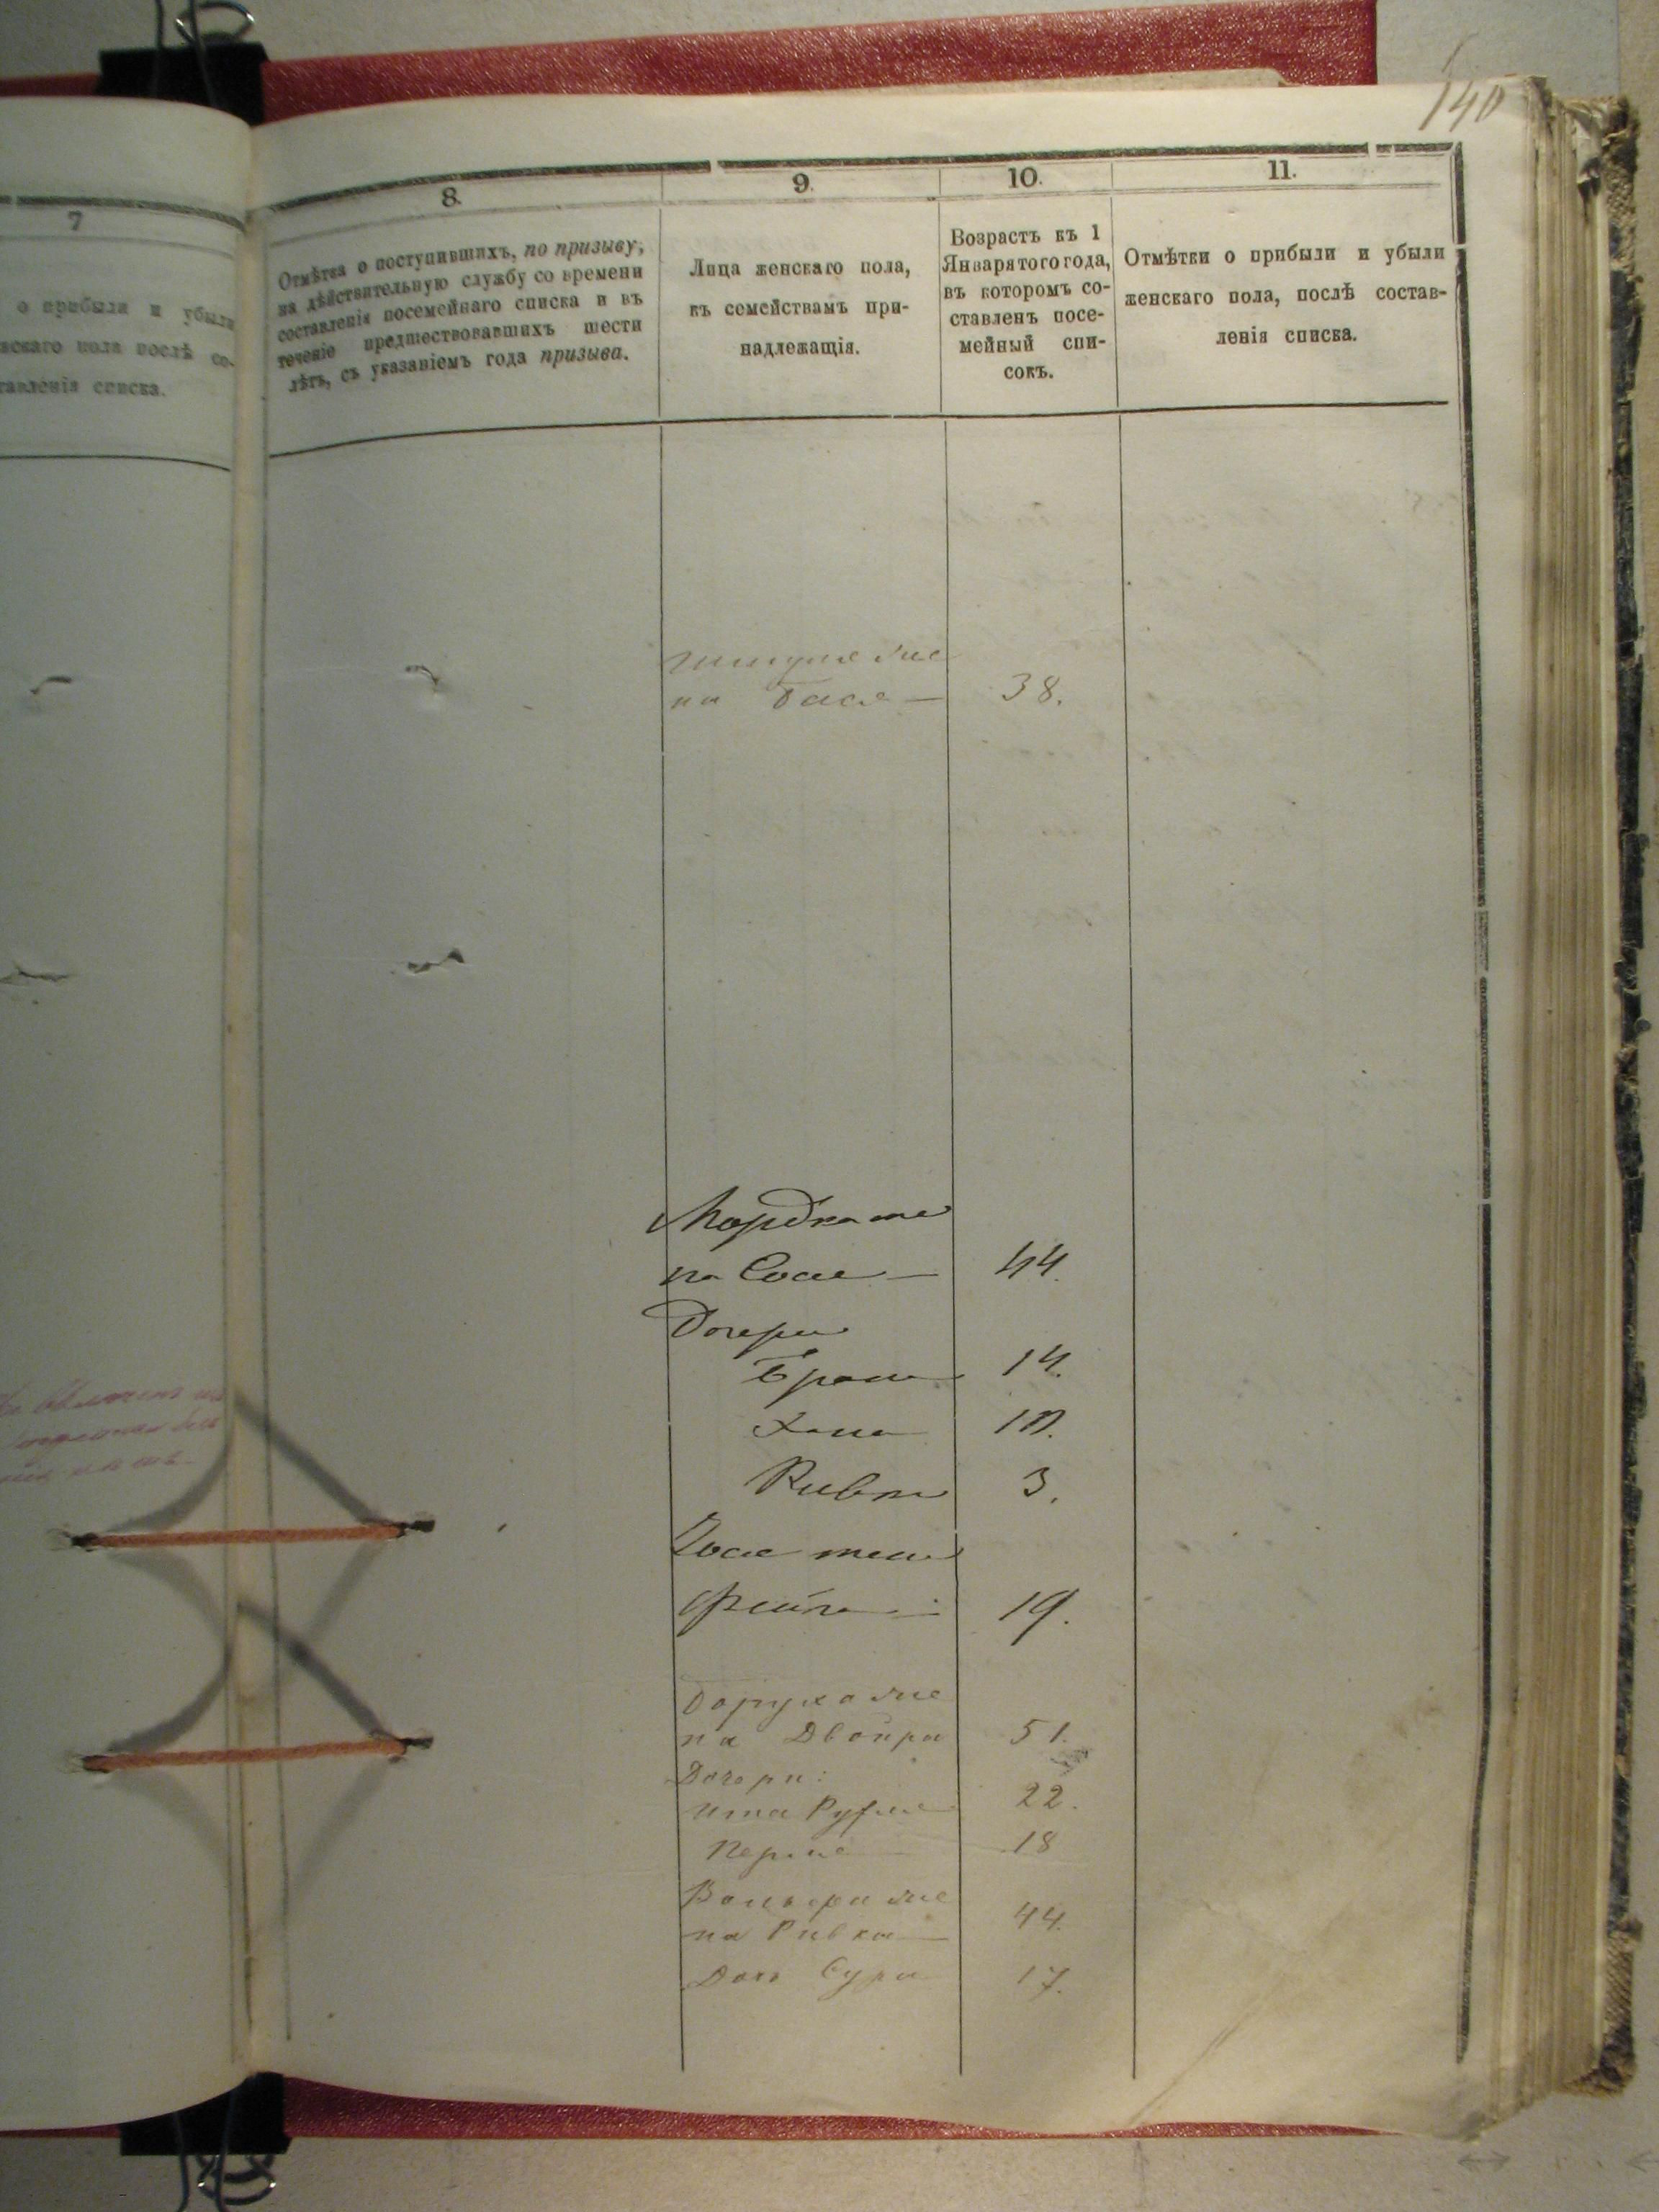 140
7
о прибыли и убыли
жскаго пола послѣ со-
тавленія списка.
8.
Отмѣтка о поступившихъ, по призыву,
на дѣйствительную службу со времени
составленія посемейнаго списка и въ
теченіе предшествовавшихъ шести
лѣтъ, съ указаніемъ года призыва.
9.
Лица женскаго пола,
къ семействамъ при-
надлежащія.
10.
Возрастъ къ 1
Января того года,
въ которомъ со-
ставленъ посе-
мейный спи-
сокъ.
11.
Отмѣтки о прибыли и убыли
женскаго пола, послѣ состав-
ленія списка.
на Бася — 38.
Мордка же
на Сося — 44.
Дочери
14.
Хана 10.
Ривка 3.
Фейга 19.
Боруха же
на Двойра 51.
Дочери:
Ита 22.
18
на Ривка — 44.
Дочь Сура 17.